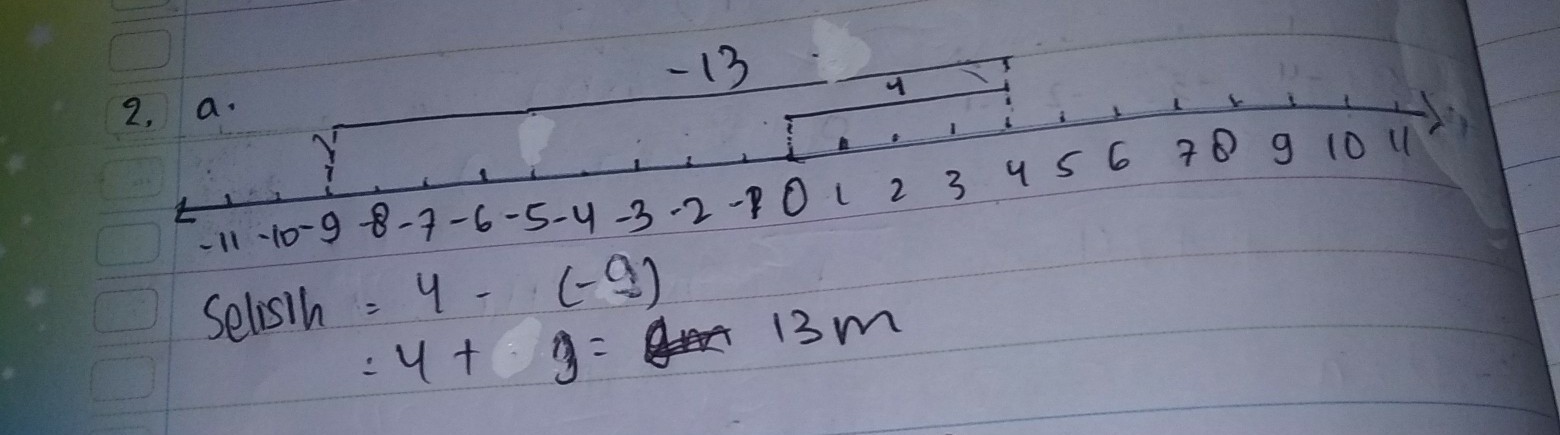 -13
2. a.
4
-11 -10 -9 -8 -7 -6 -5 -4 -3 -2 -1 0 1 2 3 4 5 6 7 8 9 10 11
Selisih = 4 - (-9)
= 4 + 9 = 13 m